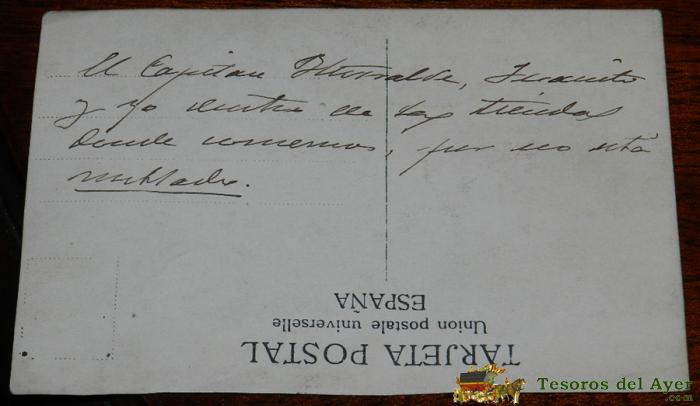 El Capitan Iturralde, Juanito
y yo dentro de las tiendas
donde comemos, que no está
nublado.
TARJETA POSTAL
Union postale universelle
ESPAÑA
Tesoros del Ayer
.com